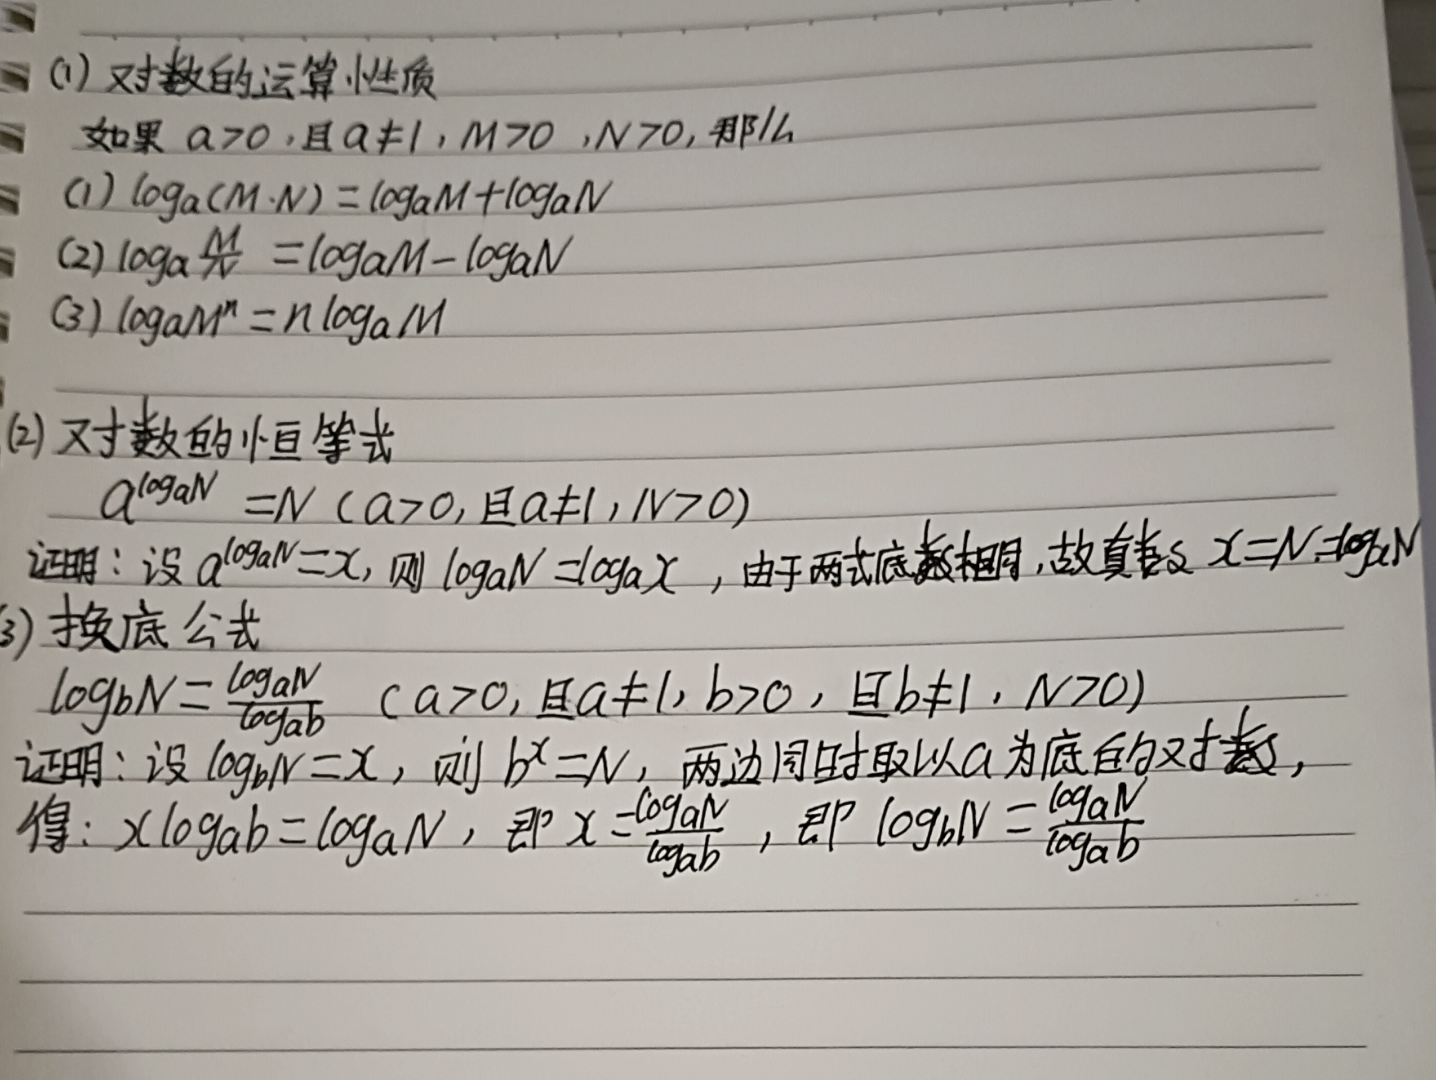 (1) 对数的运算性质
如果 a>0,且a≠1,M>0,N>0,那么
(1) logₐ(M·N)=logₐM+logₐN
(2) logₐ M/N =logₐM-logₐN
(3) logₐMⁿ=nlogₐM
(2) 对数的恒等式
a^logₐN =N (a>0,且a≠1,N>0)
证明:设a^logₐN=x,则logₐN=logₐx,由于两式底数相同,故真数x=N=logₐN
3) 换底公式
log_bN=logₐN/logₐb (a>0,且a≠1,b>0,且b≠1,N>0)
证明:设log_bN=x,则bˣ=N,两边同时取以a为底的对数,
得:xlogₐb=logₐN,即x=logₐN/logₐb,即log_bN=logₐN/logₐb